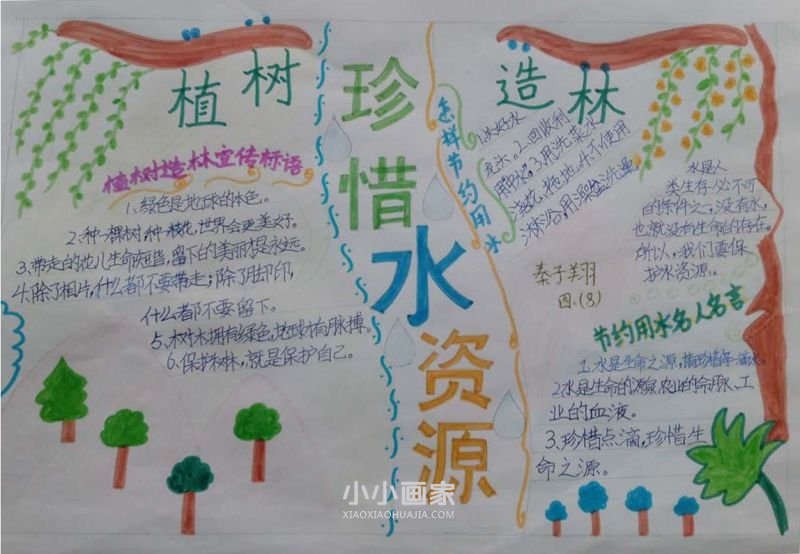 植树
造林
珍惜水资源
植树造林宣传标语
1、绿色是地球的本色。
2、种一棵树,种一枝花,世界会更美好。
3、带走的花儿生命短暂,留下的美丽提永远。
4、除了相片,什么都不要带走;除了脚印,
什么都不要留下。
5、树木拥有绿色,地球才有脉搏。
6、保护树林,就是保护自己。
怎样节约用水
1.关好水
龙头。2.回收利
用水。3.用洗菜水
浇花,拖地。4.不使用
淋浴,用澡盆洗澡。
水是人
类生存必不可
的条件之一,没有水,
也就没有生命的存在。
所以,我们要保
护水资源。
秦子翔
四.(8)
节约用水名人名言
1.水是生命之源,请珍惜每一滴水。
2.水是生命的源泉、农业的命脉、工
业的血液。
3、珍惜点滴,珍惜生
命之源。
小小画家
XIAOXIAOHUAJIA.COM